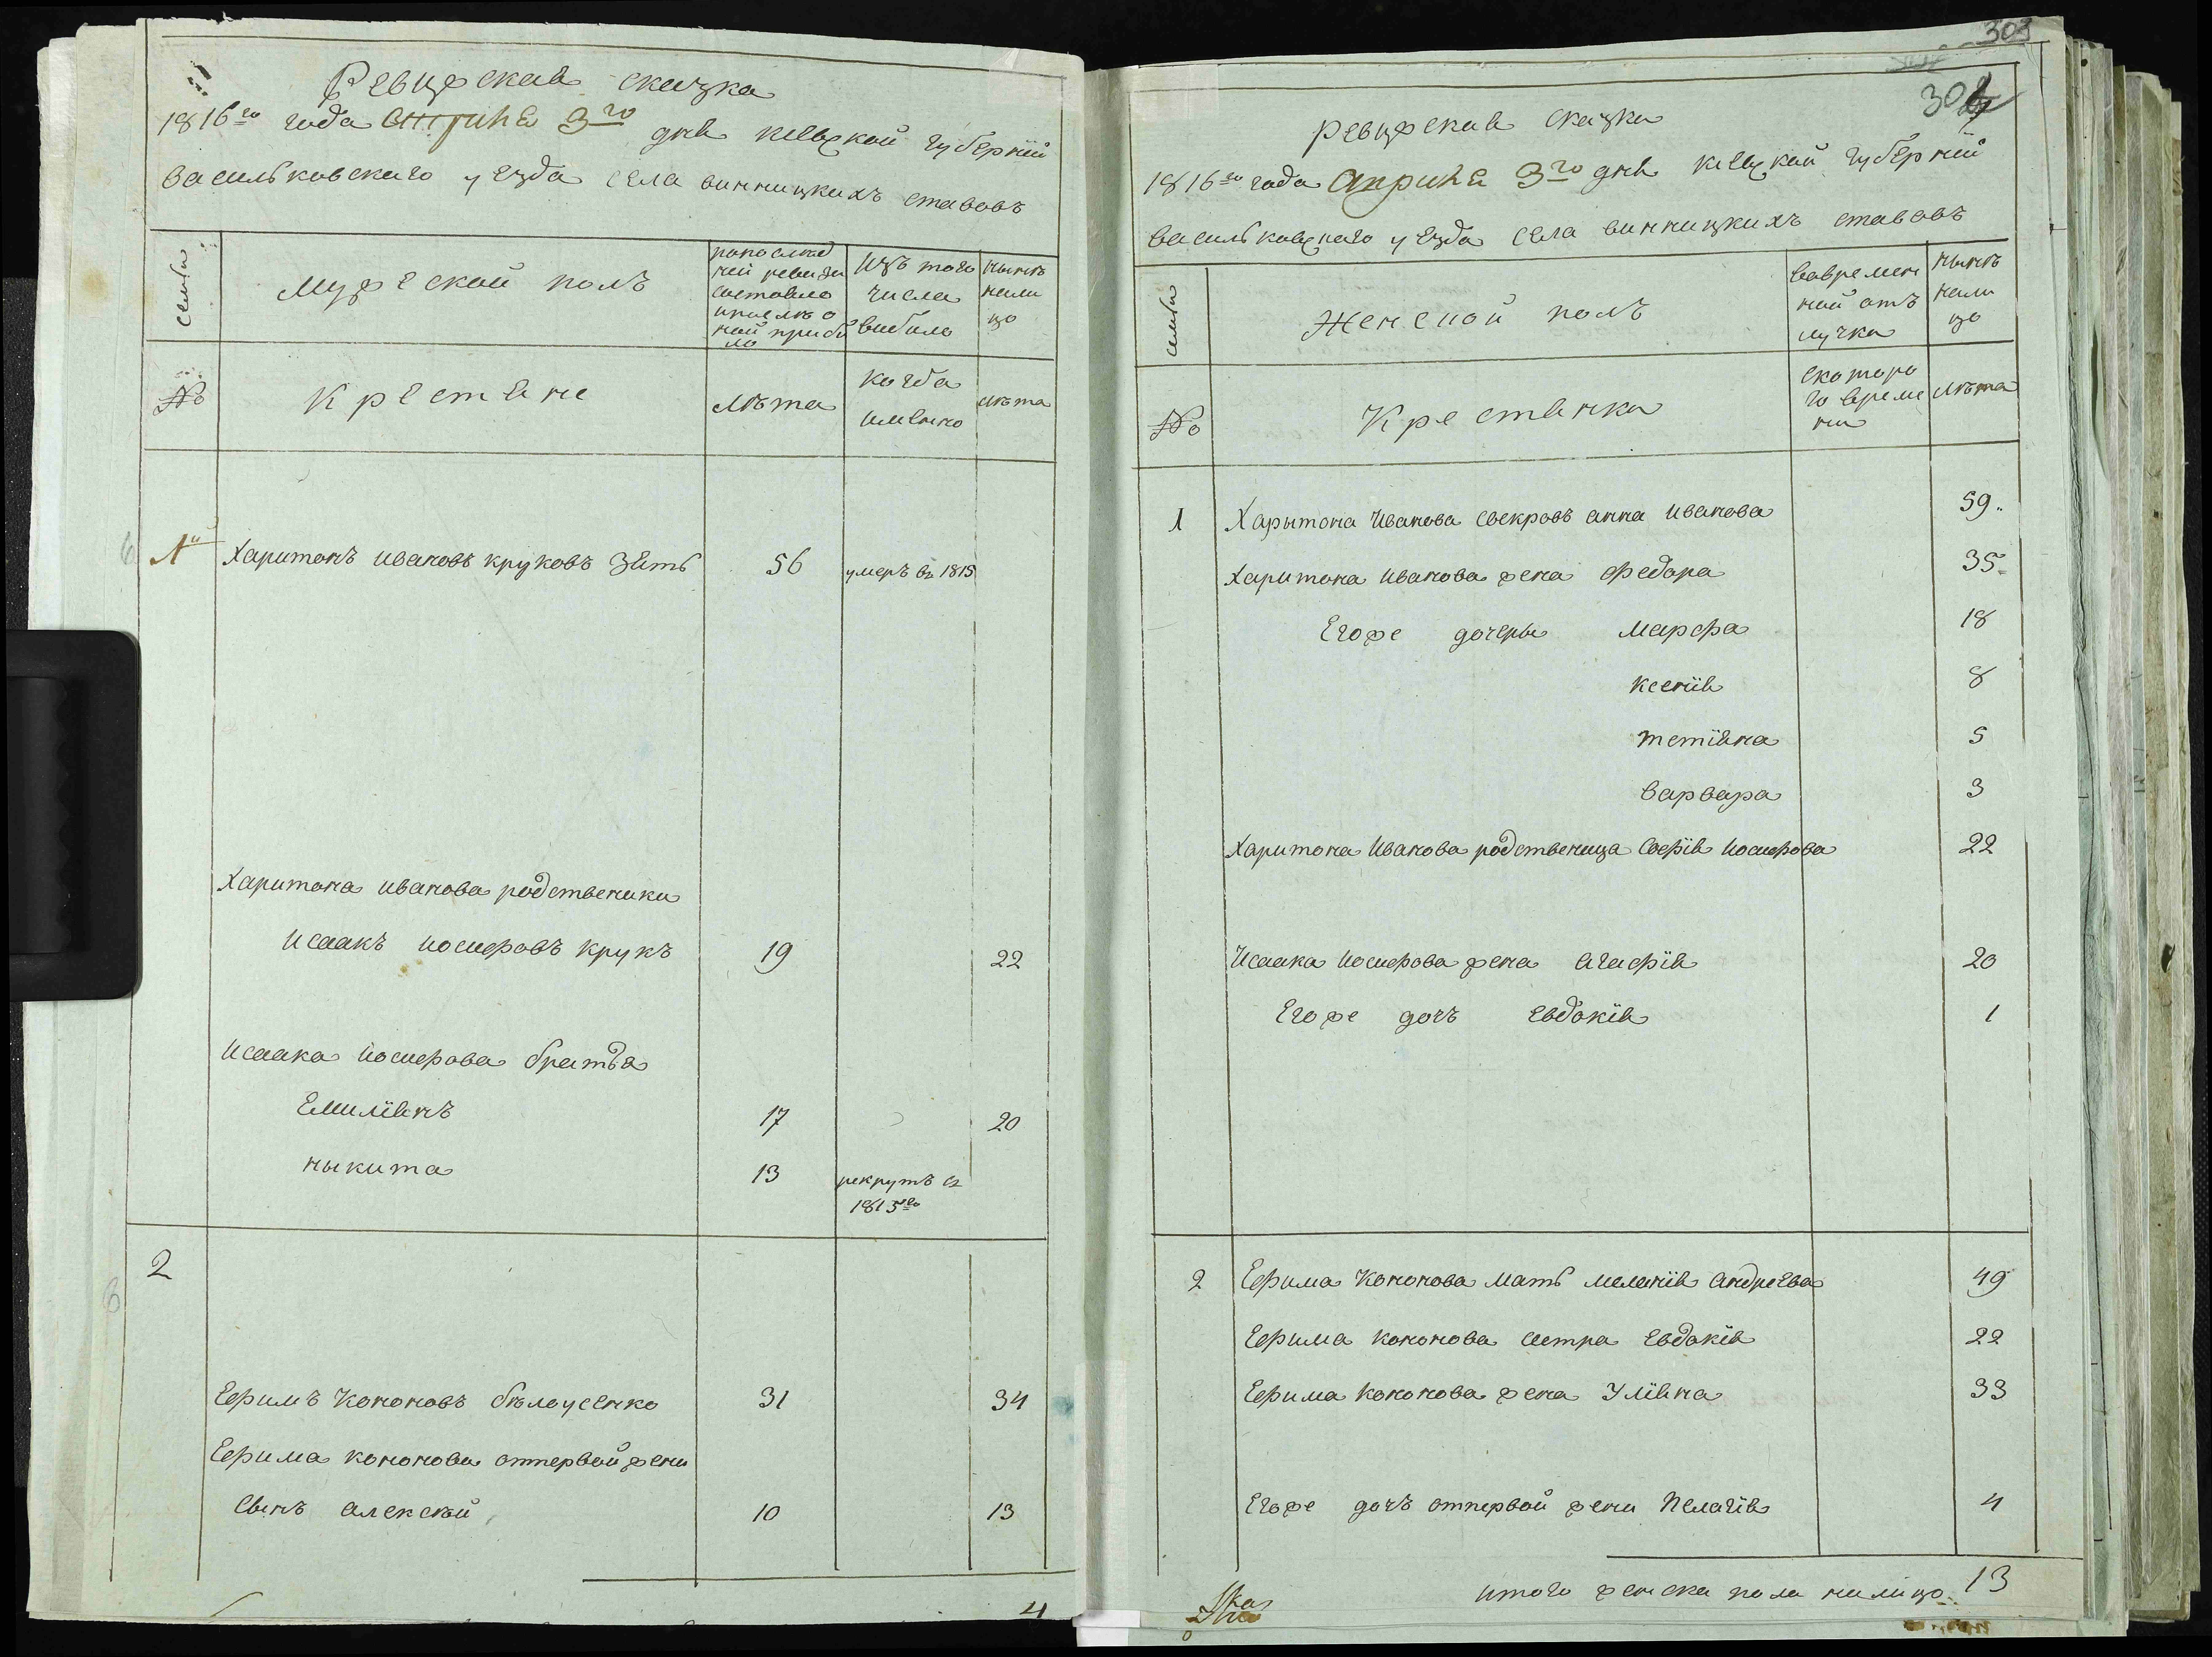 Ревизская сказка
1816го года Априля 3го дня киевской губернїи
васильковского уезда села винницкихъ ставовъ
семьи
Мужеской полъ
попослед
ней ревизїи
состояло
и после о
ной прибы
ло
Изъ того
числа
выбыло
нынѣ
нали
цо
№
Крестьяне
Лѣта
когда
именно
лѣта
1й
Харитонъ ивановъ круковъ зять
56
умеръ въ 1815
Харитона иванова родственики
Исаакъ иосифовъ крукъ
19
22
Исаака иосифова братья
Емилїянъ
17
20
ныкита
13
рекрутъ въ
1813го
2
Ефимъ Кононовъ бѣлоусенко
31
34
Ефима кононова отпервой жени
сынъ алексѣй
10
13
4
303
302
ревизская сказка
1816го года Априля 3го дня киевской губернїи
васильковского уезда села винницкихъ ставовъ
семьи
Женской полъ
вовремен
ной отъ
лучки
нынѣ
нали
цо
№
Крестьянки
скоторо
го време
ни
лѣта
1
Харытона Иванова свекровъ анна иванова
59
Харитона иванова жена федора
35
Егоже дочеры марфа
18
ксенїя
8
тетїяна
5
варвара
3
Харитона Иванова родственица софїя иосифова
22
Исаака иосифова жена агафїя
20
Егоже дочъ евдокїя
1
2
Ефима Кононова мать меланїя андреева
49
Ефима кононова сестра евдокїя
22
Ефима кононова жена Улїяна
33
Егоже дочъ отпервой жени пелагїя
4
итого женска пола налицо
13